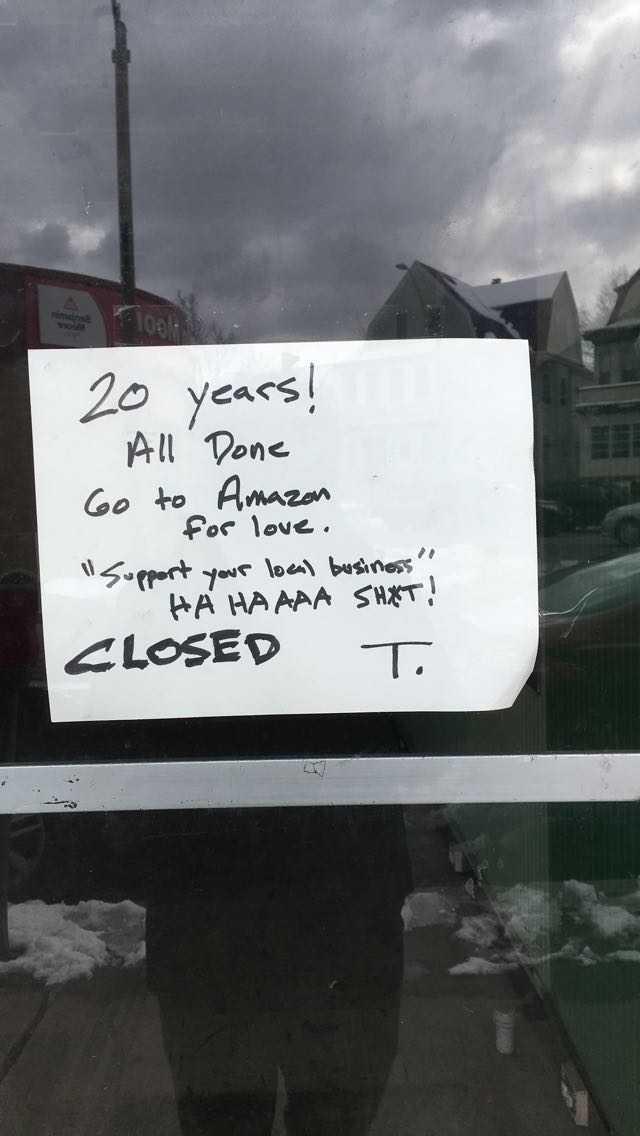 20 years!
All Done
Go to Amazon
for love.
"Support your local business"
HA HAAAA SH*T!
CLOSED T.
Benjamin
Moore